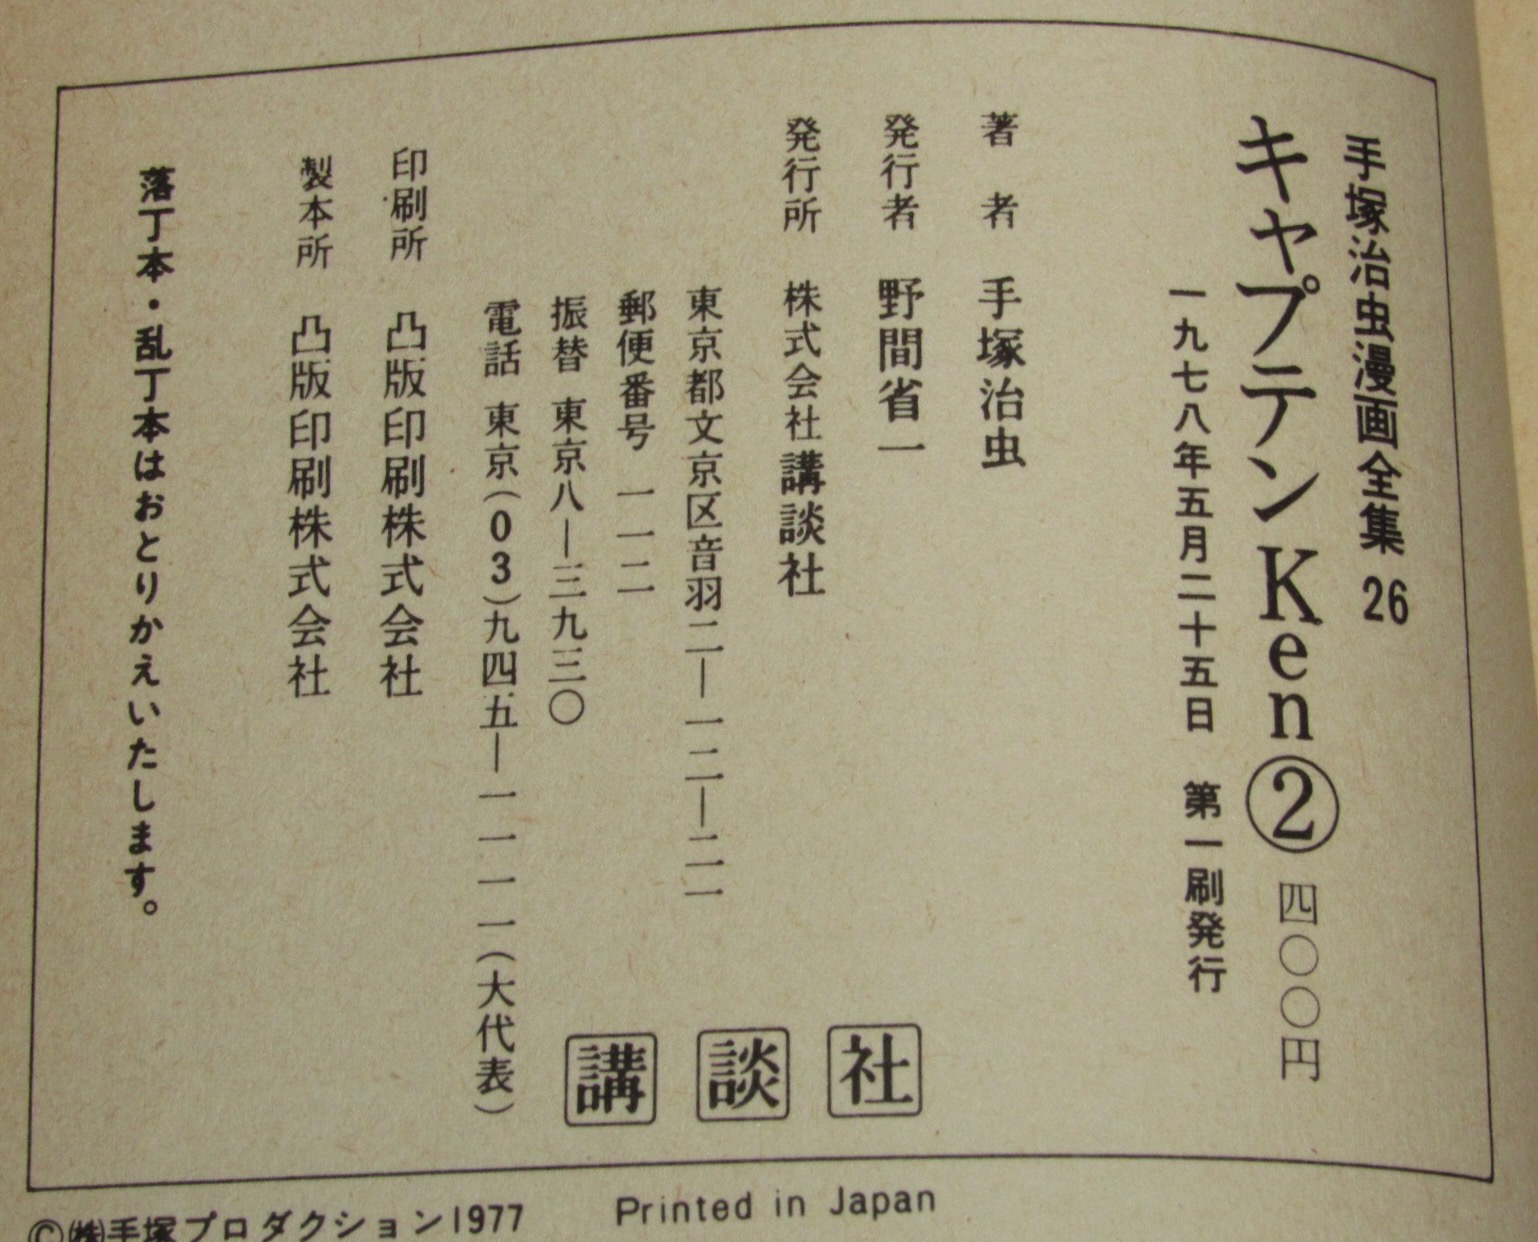 手塚治虫漫画全集 26
キャプテンKen② 四〇〇円
一九七八年五月二十五日 第一刷発行
著 者 手塚治虫
発行者 野間省一
発行所 株式会社講談社
東京都文京区音羽二―一二―二一
郵便番号 一一二
振替 東京八―三九三〇
電話 東京(03)九四五―一一一一(大代表)
印刷所 凸版印刷株式会社
製本所 凸版印刷株式会社
落丁本・乱丁本はおとりかえいたします。
講談社
©㈱手塚プロダクション1977 Printed in Japan